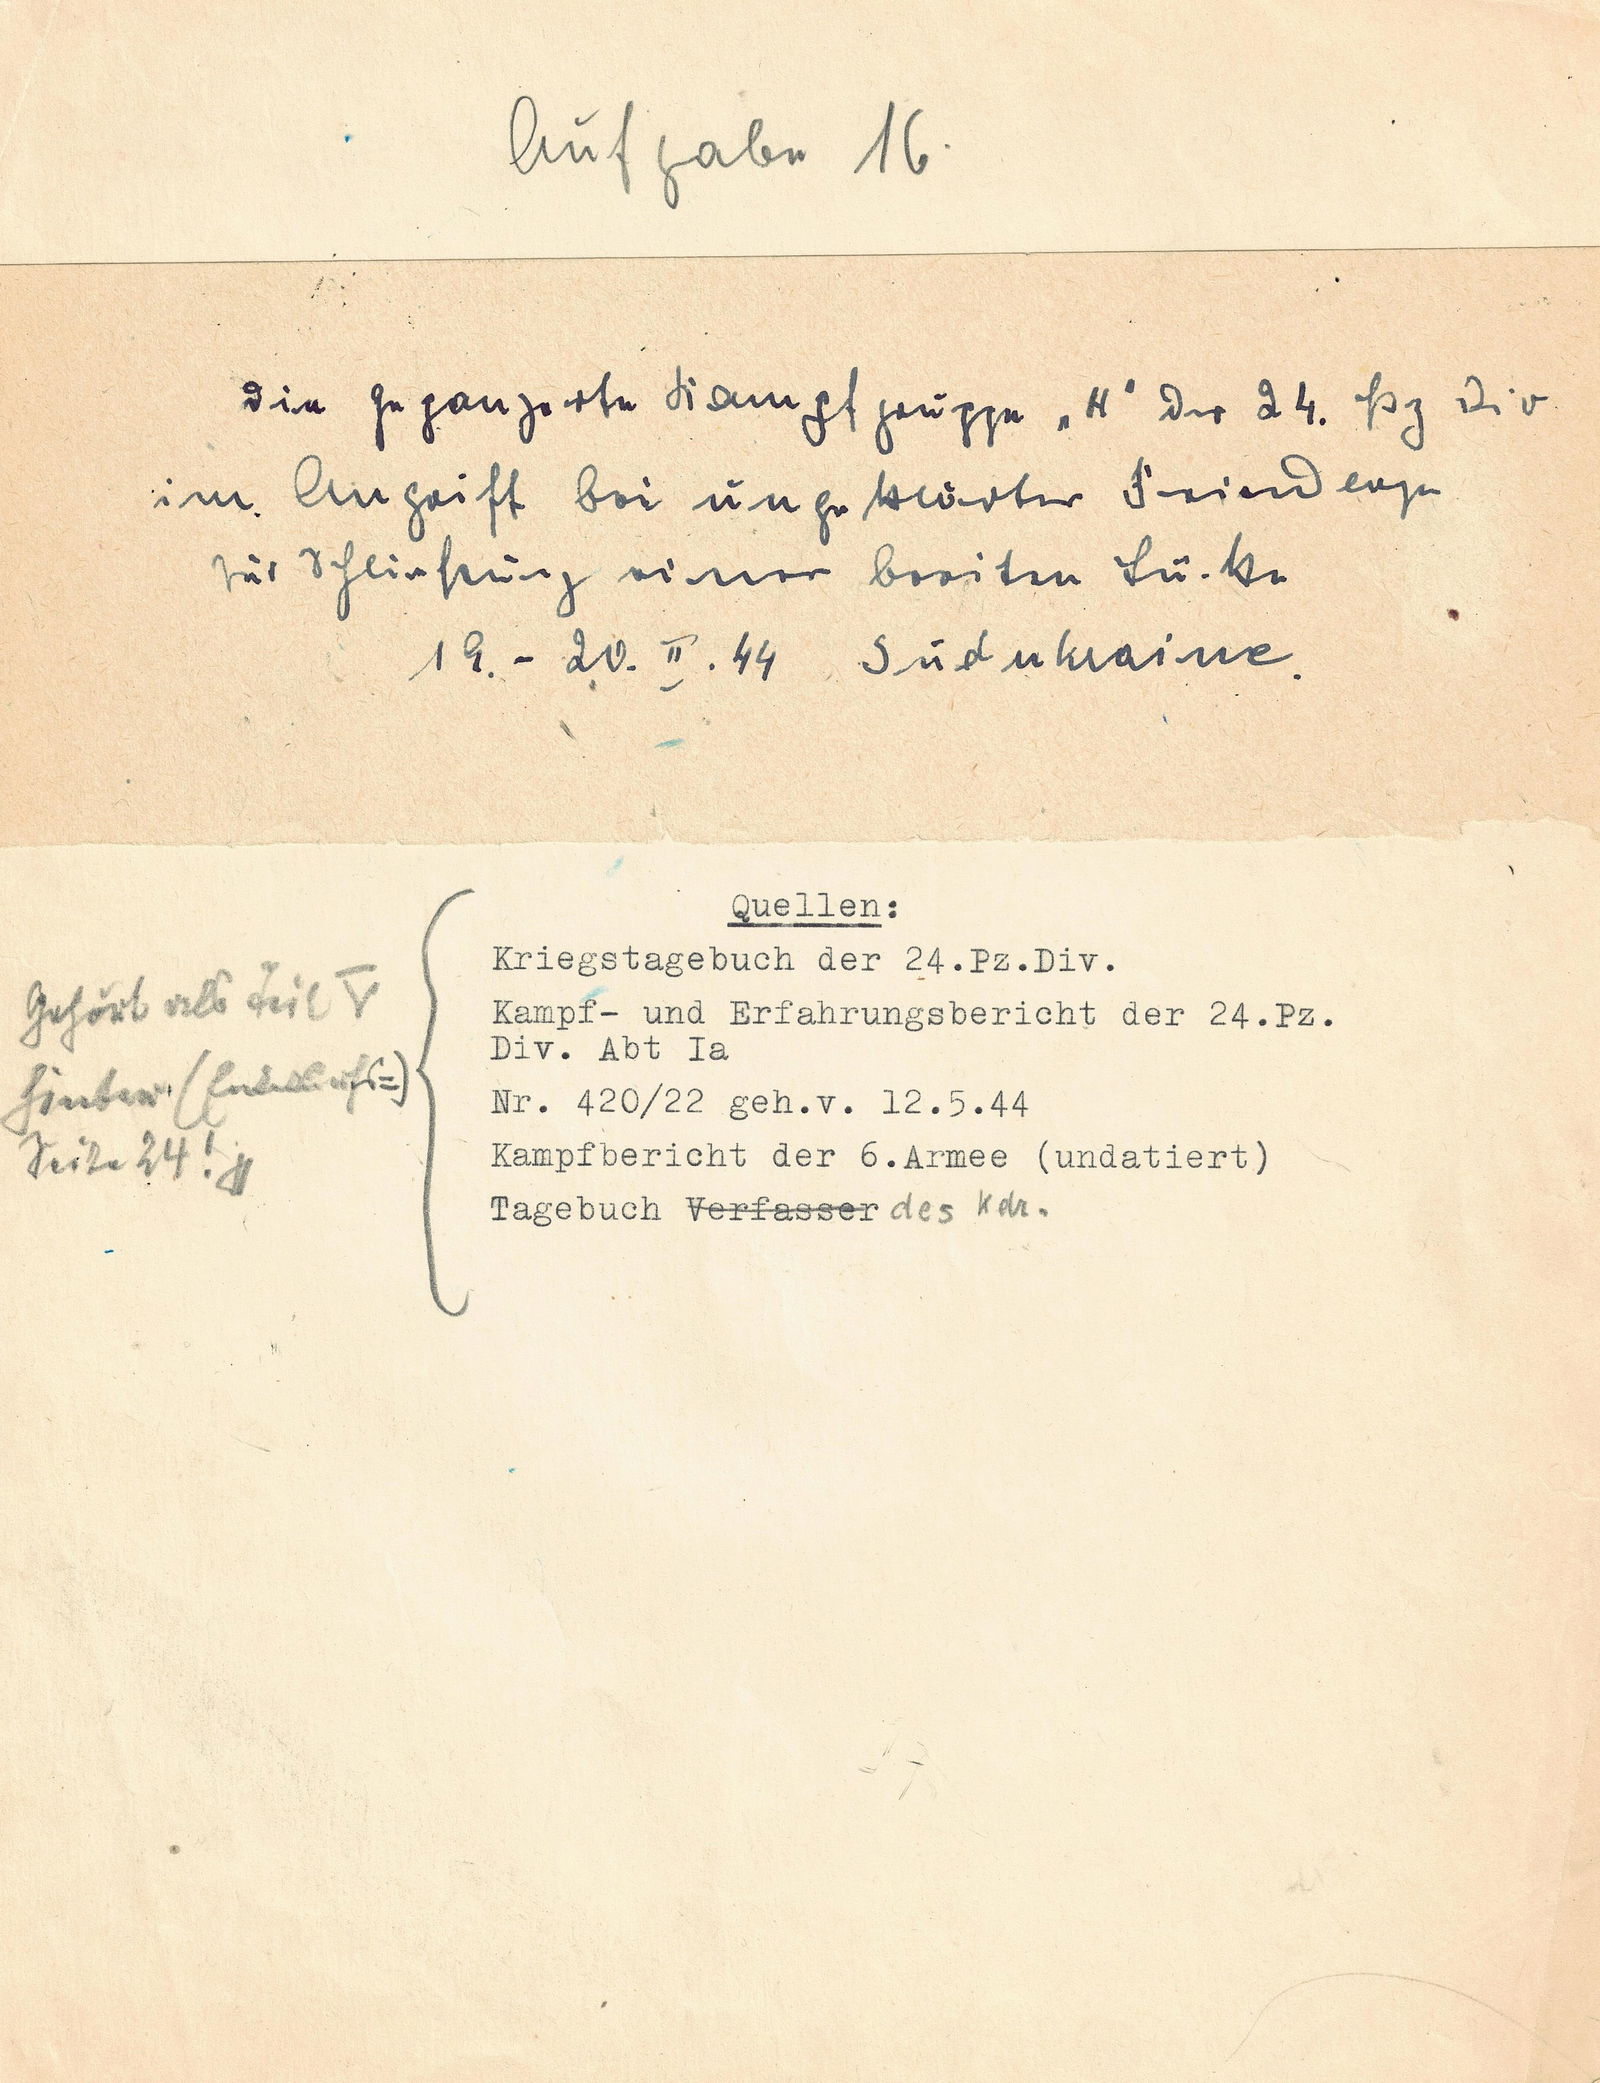 Aufgabe 16.
Die gepanzerte Kampfgruppe „H" der 24. Pz Div
im Angriff bei ungeklärter Feindlage
zur Schließung einer breiten Lücke
19. - 20. II. 44 Südukraine.
Quellen:
Kriegstagebuch der 24.Pz.Div.
Kampf- und Erfahrungsbericht der 24.Pz.
Div. Abt Ia
Nr. 420/22 geh.v. 12.5.44
Kampfbericht der 6.Armee (undatiert)
Tagebuch Verfasser des Kdr.
Gehört als Teil V
hinter
Seite 24!